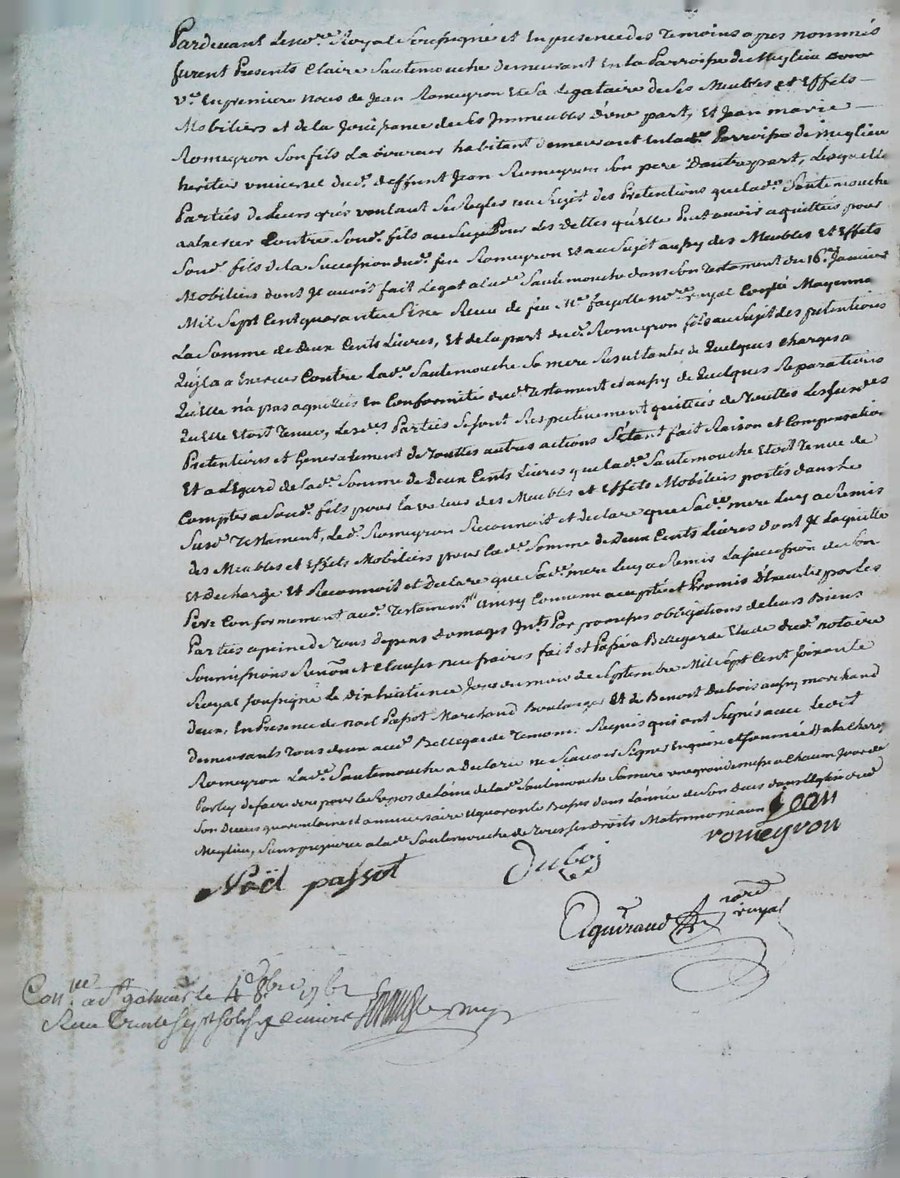 Pardevant Le no.re Royal Soussigné et En presence des Temoins apres nommés
furent Presents Claire Sautemouche demeurant En La Parroisse de Meylieu
v.e En premiere noces de Jean Romeyron Et Sa Legataire de Ses Meubles et Effets
Mobiliers et de la Jouissance de Ses Immeubles d'une part, Et Jean marie
Romeyron Son fils Laboureur habitant demeurant En lad.e Parroisse de meylieu
heritier universel dud.t deffunt Jean Romeyron Son pere D'autre part, Lesquelles
Parties de Leurs grés voulant Se Regler au Sujet des Pretentions que lad.e Sautemouche
a Exercer Contre Soud.t fils au Sujet Pour Les dettes qu'elle Peut avoir aquittés pour
Soud.t fils de la Succession dud.t feu Romeyron Et au Sujet aussy des Meubles Et Effets
Mobiliers dont Il avoit fait Legat a lad.e Sautemouche dans Son Testament du 16.e Janvier
Mil Sept Cent quarante Sixe Receu de feu M.e fayolle no.re royal Moyenne
La Somme de Deux Cents Livres, Et de la part dud.t Romeyron fils au Sujet des pretentions
qu'il a a Exercer Contre Lad.e Sautemouche Sa mere Resultantes de Quelques charges
qu'elle n'a pas aquittés En Conformité dud.t Testament et aussy de Quelques Reparations
qu'elle Etoit Tenue, Lesd.es Parties Se Sont Respectivement quittées de Touttes Lesdittes
Pretentions et Generalement de Touttes autres actions S'étant fait Raison et Compensation
Et a L'Egard de lad.e Somme de Deux Cents Livres que lad.e Sautemouche Etoit Tenue de
Compter a Soud.t fils pour la valeur des Meubles et Effets Mobiliers portés dans Le
Susd.t Testament, Led.t Romeyron Reconnoit et declare que Sad.e mere Luy a Remis
des Meubles et Effets Mobiliers pour lad.e Somme de Deux Cents Livres dont Il La quitte
Et decharge Et Reconnoit et Declare que Sad.e mere Luy a Remis La Succession de Son
Pere Conformement aud.t Testament Ainsy Convenu accepté et Promis d'Executer par Les
Parties a peine de Tous depens domages Int.ts Par promesses obligations de Leurs Biens
Soumissions Renon et Clauses fait et Passé a Bellegarde Etude dud.t notaire
Royal Soussigné Le dix huitieme Jour du mois de Septembre Mil Sept Cent Soixante
deux, En Presence de noel Passot Marchand Boulanger Et de Benoit Dubois aussy marchand
demeurants Tous deux aud.t Bellegarde Temoins Requis qui ont Signés avec Le dit
Romeyron Lad.e Sautemouche a Declaré ne Scavoir Signer Enquise et Sommée
Partie de faire dire pour le Repos de L'ame de lad.e Sautemouche Sa mere une grande messe a chacun Jour de
Son Deces quarantaine et anniversaire Et quarante Basses dans L'année de Son deces dans L'Eglise de
Meylieu, Sans prejudice a lad.e Sautemouche de Tous Ses droits Matrimoniaux Jean
romeyron
Noël passot
Dubois
Aiguiraud
no.re royal
Con.lle a S.t galmier le 4 8bre 1762
Receu Trente Sept Sols